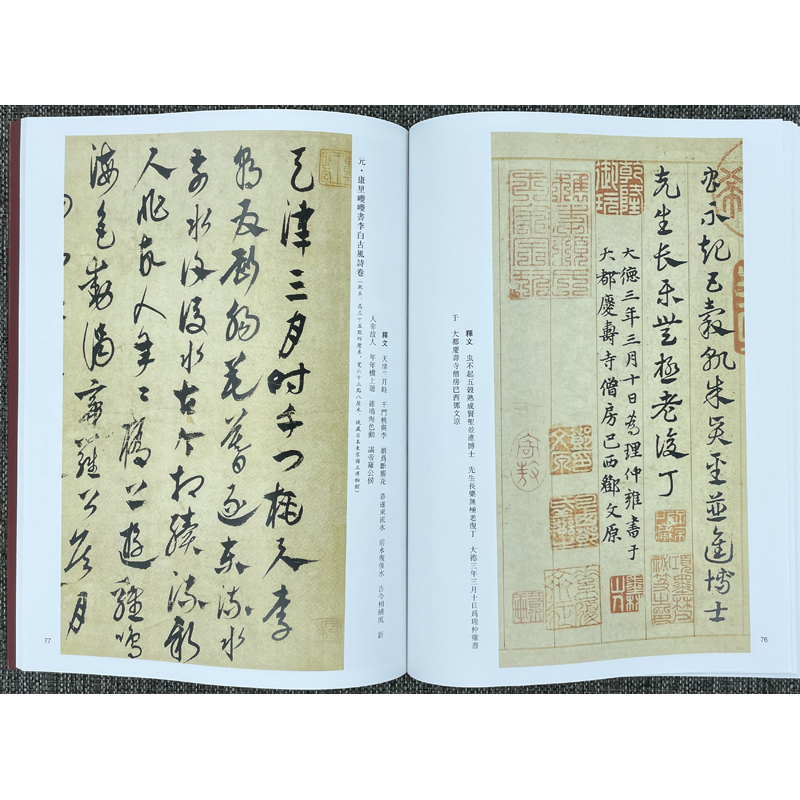 虫不起五穀孰成賢聖並進博士
先生長樂無極老復丁
大德三年三月十日為理仲雍書于
大都慶壽寺僧房巴西鄧文原
乾隆御玩
釋文 虫不起五穀熟成賢聖並進博士 先生長樂無極老復丁 大德三年三月十日爲理仲雍書
于 大都慶壽寺僧房巴西鄧文原
76
元·康里巎巎書李白古風詩卷（紙本，高三十五點四厘米，寬六十三點八厘米，現藏日本東京國立博物館）
釋文 天津三月時 千門桃與李 朝爲斷腸花 暮逐東流水 前水復後水 古今相續流 新
人非故人 年年橋上遊 雞鳴海色動 謁帝羅公侯
天津三月時千門桃與李
朝為斷腸花暮逐東流水
前水復後水古今相續流新
人非故人年〻橋上遊雞鳴
海色動謁帝羅公侯月
77